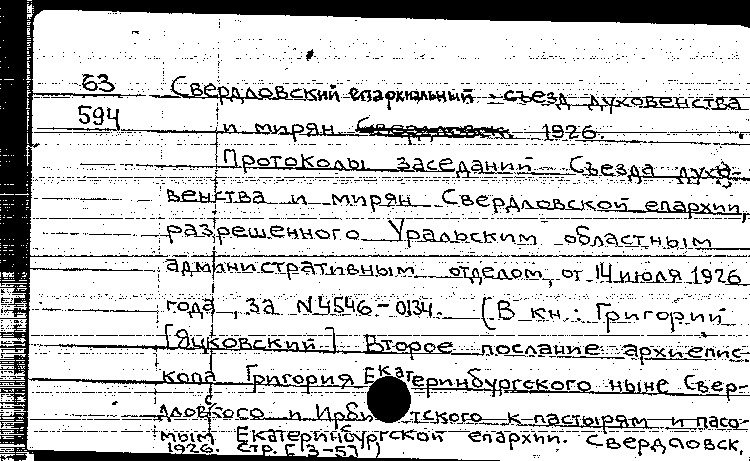 63 Свердловский епархиальный съезд духовенства
594 и мирян Свердловск. 1926.
Протоколы заседаний Съезда духо-
венства и мирян Свердловской епархии,
разрешенного Уральским областным
административным отделом, от 14 июля 1926
года, за N 4546-0134. (В кн.: Григорий
[Яцковский] Второе послание архиепис
копа Григория Екатеринбургского ныне Свер-
дловского и Ирбитского к пастырям и пасо-
мым Екатеринбургской епархии. Свердловск,
1926. стр. [3-5])